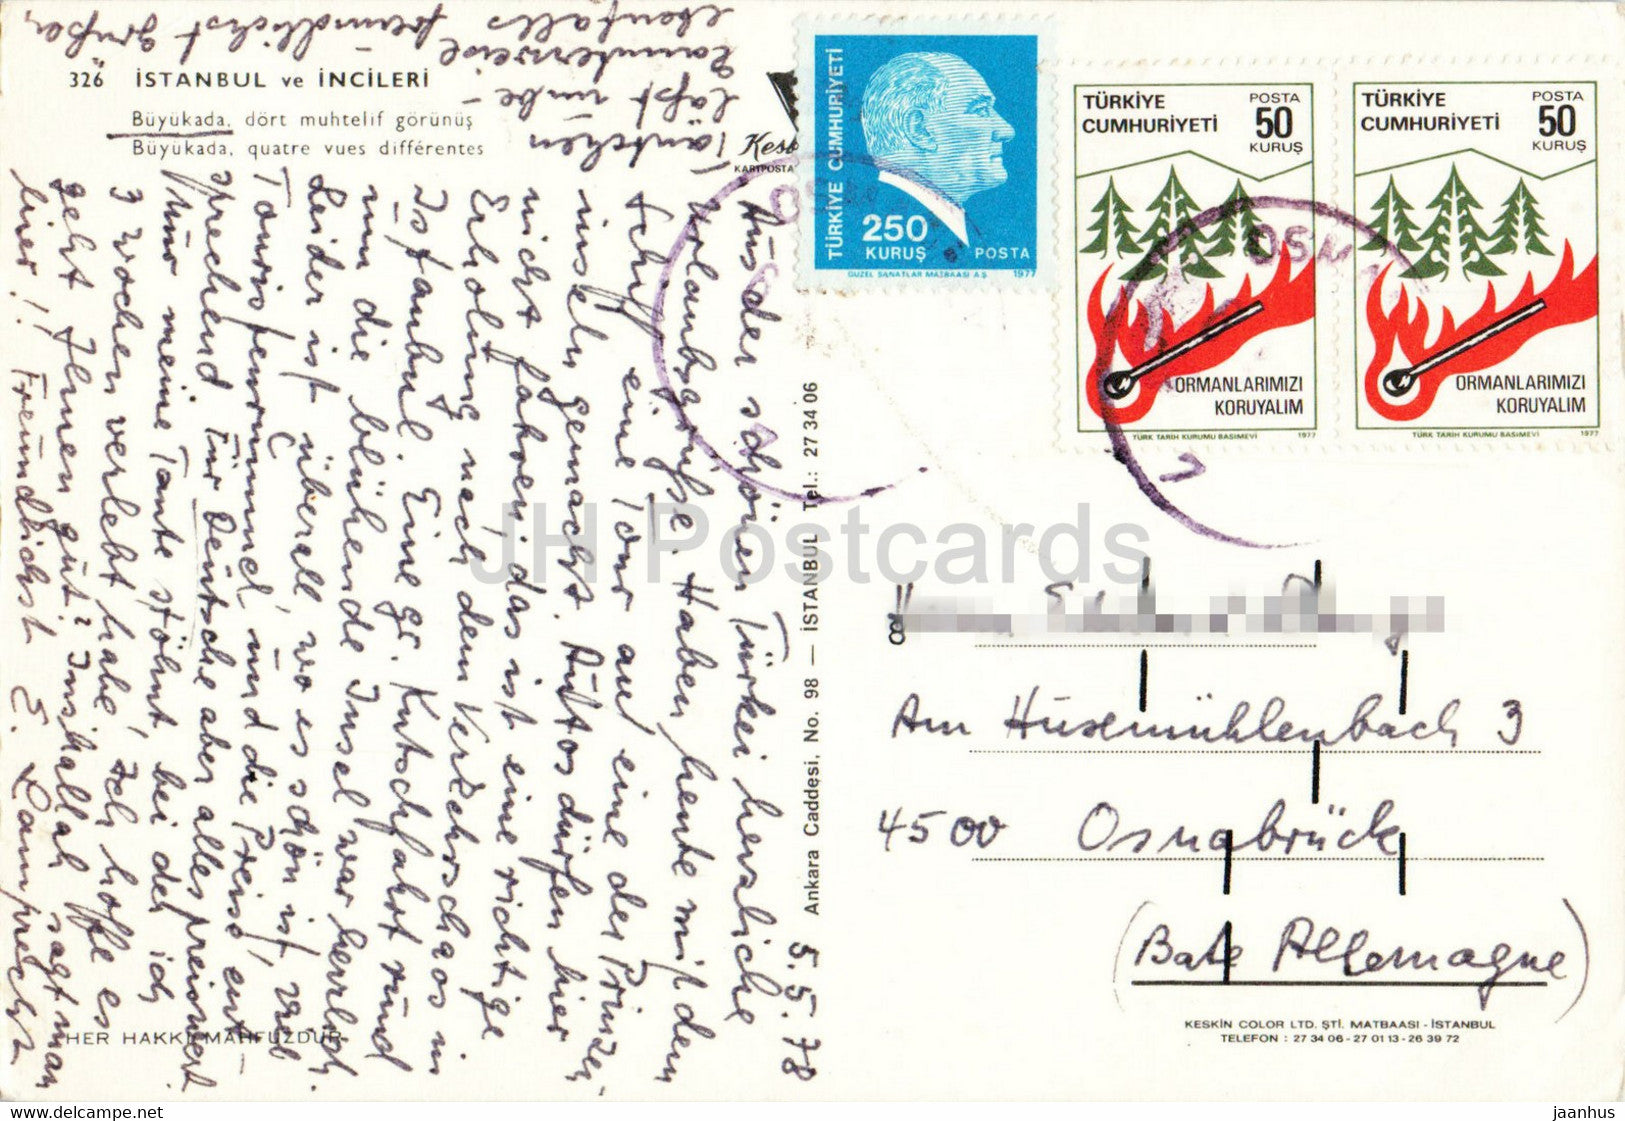 326 İSTANBUL ve İNCİLERİ
Büyükada, dört muhtelif görünüş
Büyükada, quatre vues différentes
5.5.78
Aus der schönen Türkei herzliche
Urlaubsgrüße. Haben heute mit dem
Schiff eine Tour auf eine der Prinzen-
inseln gemacht. Autos dürfen hier
nicht fahren, das ist eine richtige
Erholung nach dem Verkehrschaos in
Istanbul. Eine gr. Kutschfahrt rund
um die blühende Insel war herrlich.
Leider ist überall wo es schön ist,
"Tourisfenrummel" und die Preise ent
sprechend. Für Deutsche aber alles preiswert
Nur meine Tante stöhnt, bei der ich
3 Wochen verlebt habe. Ich hoffe es
geht Ihnen gut? Inshallah sagt man
hier! Freundlichst E. Lamprecht
Tantchen
läßt unbe-
kannterweise
ebenfalls freundlichst grüßen
HER HAKKI MAHFUZDUR
Kes
KARTPOSTA
Ankara Caddesi, No. 98 — İSTANBUL Tel.: 27 34 06
TÜRKİYE CUMHURİYETİ
250
KURUŞ
POSTA
GÜZEL SANATLAR MATBAASI A.Ş. 1977
TÜRKİYE
CUMHURİYETİ
POSTA
50
KURUŞ
ORMANLARIMIZI
KORUYALIM
TÜRK TARİH KURUMU BASIMEVİ 1977
TÜRKİYE
CUMHURİYETİ
POSTA
50
KURUŞ
ORMANLARIMIZI
KORUYALIM
TÜRK TARİH KURUMU BASIMEVİ 1977
Am Hüsemühlenbach 3
4500 Osnabrück
(Batı Allemagne)
KESKİN COLOR LTD. ŞTİ. MATBAASI - İSTANBUL
TELEFON : 27 34 06 - 27 01 13 - 26 39 72
JH Postcards
jaanhus@delcampe.net